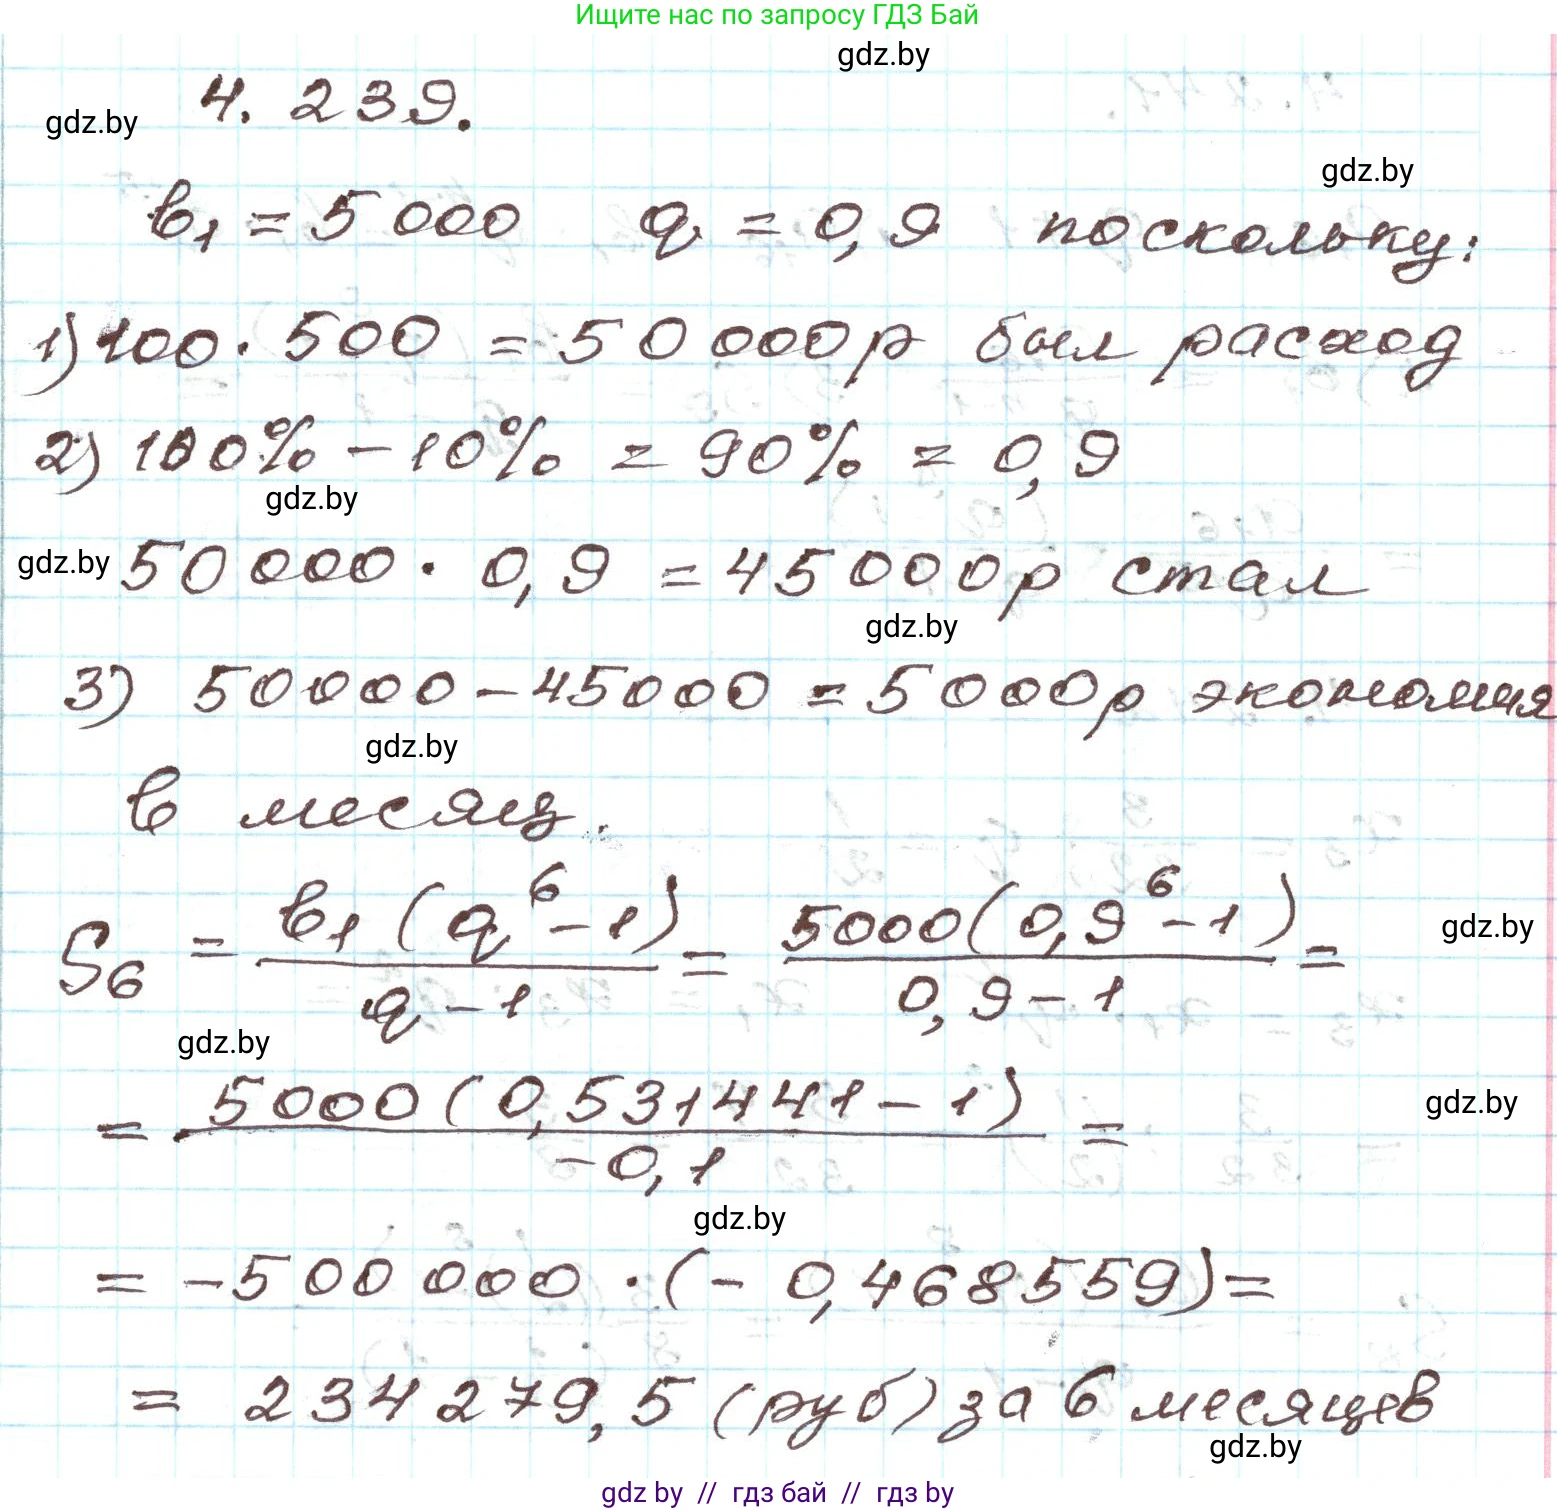 Ищите нас по запросу ГДЗ Бай
gdz.by
4. 239.
gdz.by
gdz.by
b₁ = 5 000 q = 0,9 поскольку:
1) 100 · 500 = 50 000 р был расход
2) 100% - 10% = 90% = 0,9
gdz.by
gdz.by
50 000 · 0,9 = 45 000 р стал
gdz.by
3) 50000 - 45000 = 5000р экономия
gdz.by
в месяц.
S₆ = b₁ (q⁶ - 1) / q - 1 = 5000 (0,9⁶ - 1) / 0,9 - 1 =
gdz.by
gdz.by
= 5000 (0,531441 - 1) / -0,1 =
gdz.by
gdz.by
= - 500 000 · (- 0,468559) =
= 234 279,5 (руб) за 6 месяцев
gdz.by
gdz by // гдз бай // gdz by